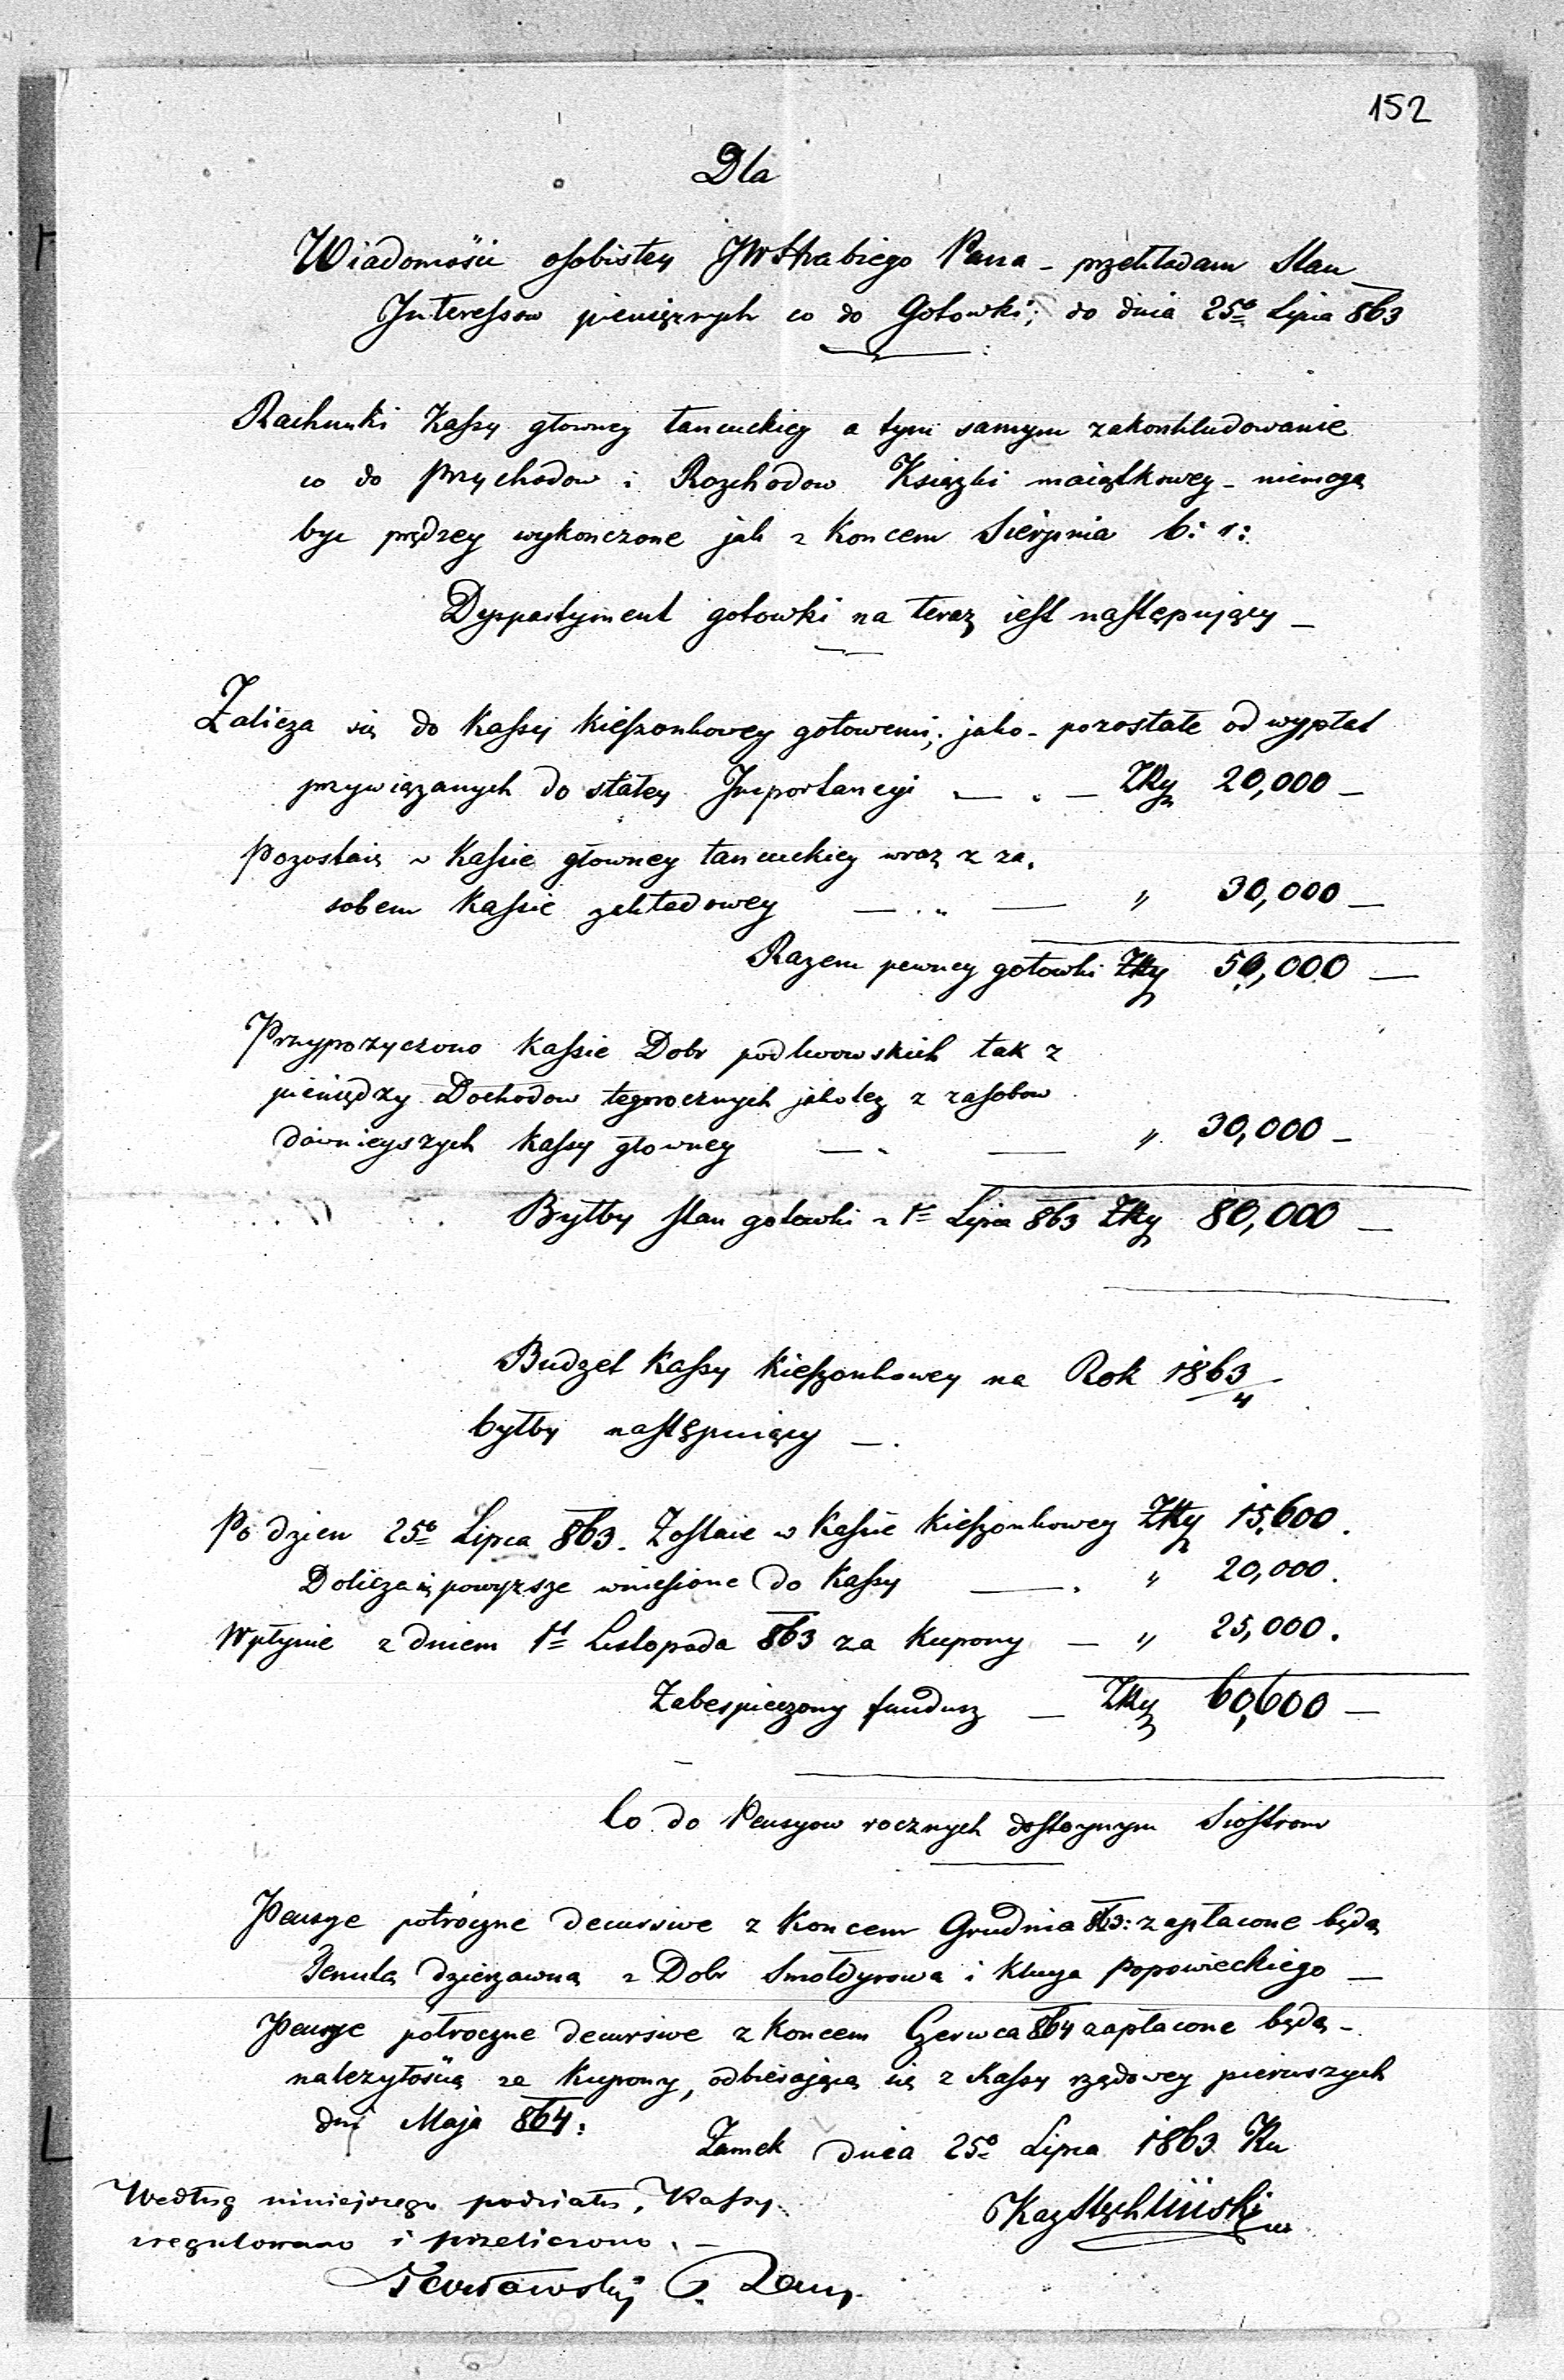 152
Dla
Wiadomości osobistey JWHrabiego Pana - przekładam Stan
Interessow pieniężnych co do Gotowki; do dnia 25º Lipca 863
Rachunki Kassy głowney łancuckiey a tym samym zakonkludowanie
co do przychodow i Rozchodow Xsiązki maiątkowey - niemogą
byc prędzey wykonczone jak z Koncem Sierpnia b: r:
Dyspartyment gotowki na teraz iest następuiący -
Zalicza się do Kassy Kieszonkowey gotowemi; jako - pozostałe od wypłat
przywiązanych do stałey Importancyi — . — ZRy 20,000 -
Pozostaie w Kassie głowney łancuckiey wraz z za,
sobem Kassie zakładowey — . „ — „ 30,000 -
Razem pewney gotowki ZRy 50,000 —
Przypozyczono Kassie Dobr podlwowskich tak z
pieniędzy Dochodow tegorocznych jakotez z zasobow
dawnieyszych Kassy głowney — . — „ 30,000 -
Byłby stan gotowki z 1º Lipca 863 ZRy 80,000 —
Budzet Kassy Kieszonkowey na Rok 1863/4
byłby następuiący — .
Po dzien 25º Lipca 863. Zostaie w Kassie Kieszonkowey ZRy 15,600.
Dolicza się powyzsze wniesione do Kassy — . „ 20,000.
Wpłynie z dniem 1º Listopada 863 za Kupony — „ 25,000.
Zabespieczony fundusz — ZRy 60,600 —
Co do Pensyow rocznych dostoynym Siostrom
Pensye połroczne decursive z Koncem Grudnia 863: zapłacone będą
Tenutą dzierzawną z Dobr Smołdyrowa i Klucza Popowieckiego —
Pensye połroczne decursive z Koncem Czerwca 864 zapłacone będą -
nalezytością za Kupony, odbieraiącą się z Kassy rządowey pierwszych
dni Maja 864:
Zamek dnia 25º Lipca 1863 Ru
Według niniejszego podziału, Kassy
uregulowano i przeliczono. -